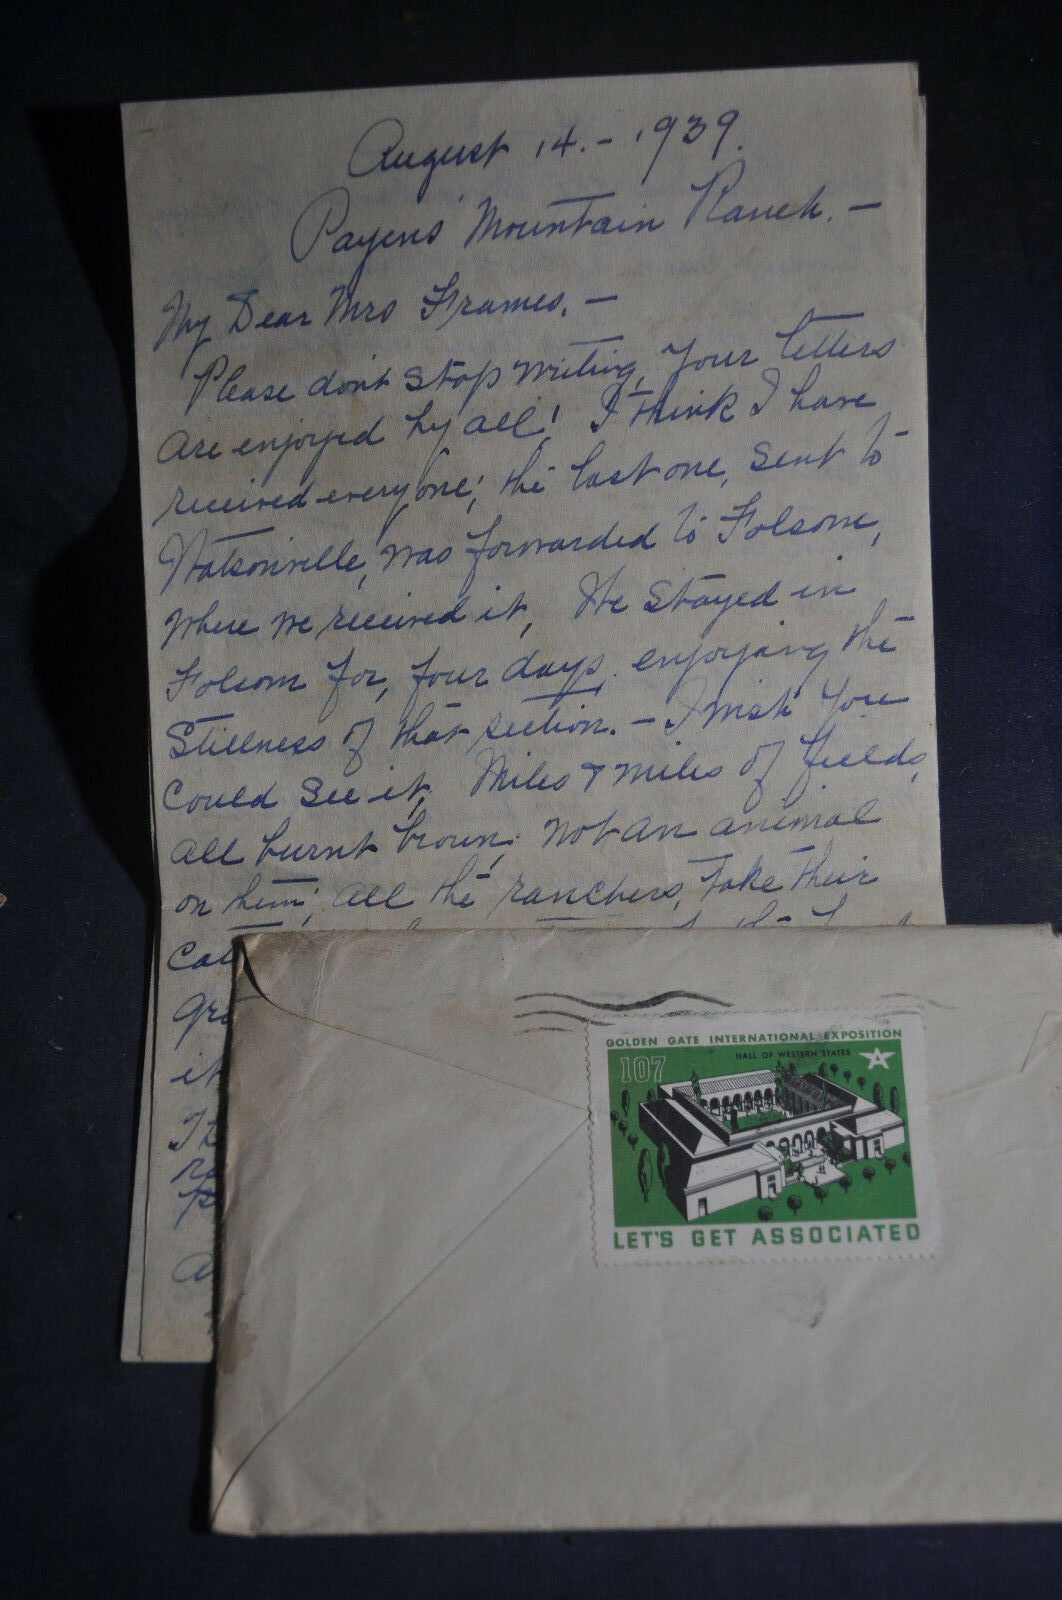 August 14. - 1939.
Payens' Mountain Ranch. -
My Dear Mrs Frames. -
Please don't stop writing, Your letters
are enjoyed by all! I think I have
received everyone; the last one, sent to
Watsonville, was forwarded to Folsom,
where we received it, We stayed in
Folsom for, four days, enjoying the
Stillness of that section. - I wish You
Could See it, Miles & miles of fields,
all burnt brown; not an animal
on them; all the ranchers, take their
it
GOLDEN GATE INTERNATIONAL EXPOSITION
HALL OF WESTERN STATES
107
A
LET'S GET ASSOCIATED